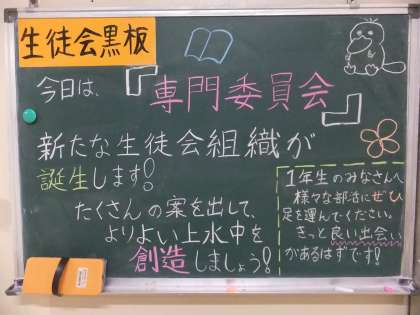 生徒会黒板
今日は、
『専門委員会』
新たな生徒会組織が
誕生します!
たくさんの案を出して、
よりよい上水中を
創造しましょう!
1年生のみなさんへ
様々な部活にぜひ
足を運んでください。
きっと良い出会い
があるはずです!